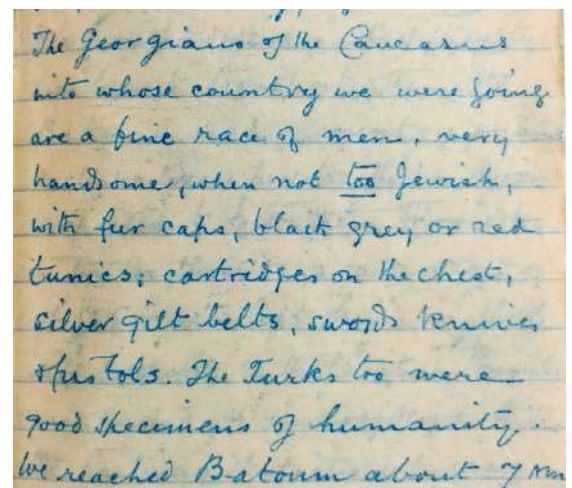 The Georgians of the Caucasus
into whose country we were going
are a fine race of men, very
handsome, when not too Jewish,
with fur caps, black grey or red
tunics, cartridges on the chest,
silver gilt belts, swords knives
& pistols. The Turks too were
good specimens of humanity.
We reached Batoum about 7